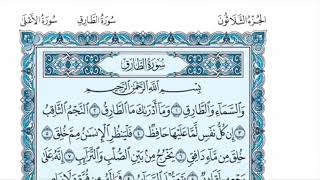 الجزء الثلاثون سورة الطارق سورة الأعلى
سُورَةُ الطَّارِقِ
بِسْمِ اللَّهِ الرَّحْمَٰنِ الرَّحِيمِ
وَالسَّمَاءِ وَالطَّارِقِ ١ وَمَا أَدْرَاكَ مَا الطَّارِقُ ٢ النَّجْمُ الثَّاقِبُ
٣ إِن كُلُّ نَفْسٍ لَّمَّا عَلَيْهَا حَافِظٌ ٤ فَلْيَنظُرِ الْإِنسَانُ مِمَّ خُلِقَ
٥ خُلِقَ مِن مَّاءٍ دَافِقٍ ٦ يَخْرُجُ مِن بَيْنِ الصُّلْبِ وَالتَّرَائِبِ ٧ إِنَّهُ عَلَىٰ